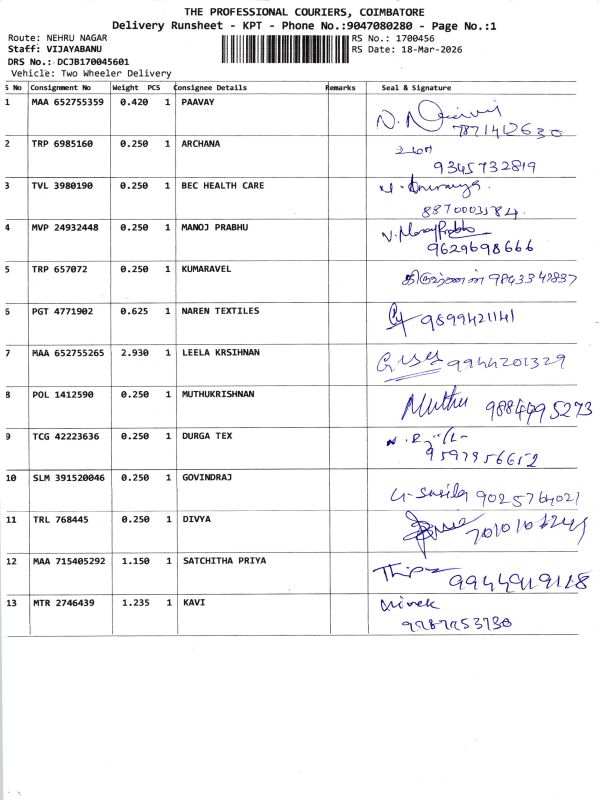 THE PROFESSIONAL COURIERS, COIMBATORE
Delivery Runsheet - KPT - Phone No.:9047080280 - Page No.:1
Route: NEHRU NAGAR
RS No.: 1700456
Staff: VIJAYABANU
RS Date: 18-Mar-2026
DRS No.: DCJB170045601
Vehicle: Two Wheeler Delivery
S No Consignment No Weight PCS Consignee Details Remarks Seal & Signature
1 MAA 652755359 0.420 1 PAAVAY
7871412630
2 TRP 6985160 0.250 1 ARCHANA
9345732819
3 TVL 3980190 0.250 1 BEC HEALTH CARE
8870003584
4 MVP 24932448 0.250 1 MANOJ PRABHU
N. Manoj Prabhu
9629698666
5 TRP 657072 0.250 1 KUMARAVEL
6 PGT 4771902 0.625 1 NAREN TEXTILES
9899421141
7 MAA 652755265 2.930 1 LEELA KRSIHNAN
9944201329
8 POL 1412590 0.250 1 MUTHUKRISHNAN
Muthu
9 TCG 42223636 0.250 1 DURGA TEX
10 SLM 391520046 0.250 1 GOVINDRAJ
G. Susila 9025764021
11 TRL 768445 0.250 1 DIVYA
12 MAA 715405292 1.150 1 SATCHITHA PRIYA
13 MTR 2746439 1.235 1 KAVI
Vivek